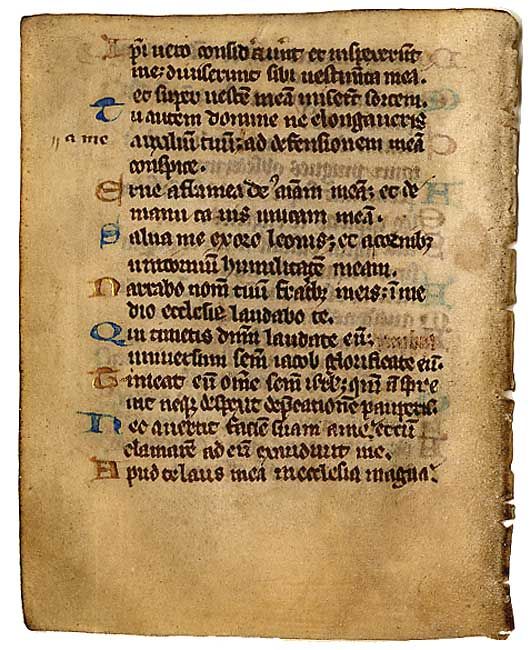 Ip̃i uero considãuũt et inspexerũt
me; diuiserunt sibi uestimẽta mea.
et super uestẽ meã miserũt sortem.
Tu autem domine ne elongaueris
a me
auxiliũ tuũ; ad defensionem meã
conspice.
Erue a framea deꝰ aĩam meã; et de
manu canis unicam meã.
Salua me ex ore leonis; et a cornibꝫ
unicorniũ humilitatẽ meam.
Narrabo nom̃ tuũ fratibꝫ meis; ĩ me
dio ecclesie laudabo te.
Qui timetis dñm laudate eũ;
uniuersum sem̃ iacob glorificate eũ.
Timeat eũ om̃e sem̃ isrł; qm̃ ñ spre
uit neqꝫ despexit dep̃cationẽ pauperis.
Nec auertit faciẽ suam a me; et cũ
clamarẽ ad eũ exaudiuit me.
Apud te laus mea in ecclesia magna;